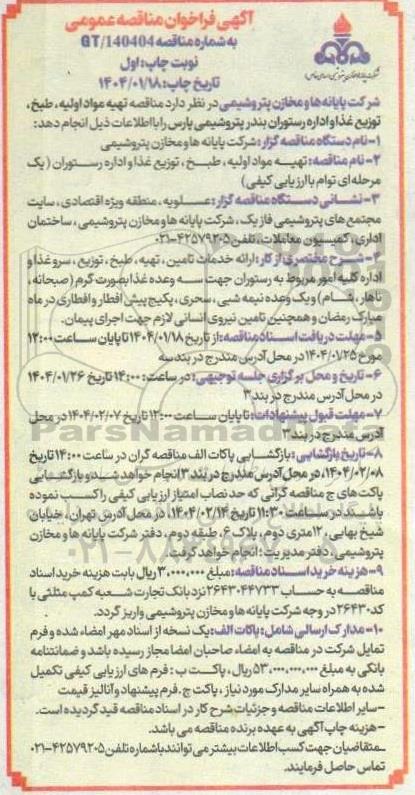 آگهی فراخوان مناقصه عمومی
به شماره مناقصه GT/140404
نوبت چاپ: اول
تاریخ چاپ: ۱۴۰۴/۰۱/۱۸
شرکت پایانه ها و مخازن پتروشیمی در نظر دارد مناقصه تهیه مواد اولیه، طبخ،
توزیع غذا و اداره رستوران بندر پتروشیمی پارس را با اطلاعات ذیل انجام دهد:
۱-نام دستگاه مناقصه گزار: شرکت پایانه ها و مخازن پتروشیمی
۲-نام مناقصه: تهیه مواد اولیه، طبخ، توزیع غذا و اداره رستوران (یک
مرحله ای توام با ارزیابی کیفی)
۳-نشانی دستگاه مناقصه گزار: عسلویه، منطقه ویژه اقتصادی، سایت
مجتمع های پتروشیمی فاز یک، شرکت پایانه ها و مخازن پتروشیمی، ساختمان
اداری، کمیسیون معاملات، تلفن ۴۲۵۷۹۲۰۵-۰۲۱
۴-شرح مختصری از کار: ارائه خدمات تامین، تهیه، طبخ، توزیع، سرو غذا و
اداره کلیه امور مربوط به رستوران جهت سه وعده غذا بصورت گرم (صبحانه،
ناهار، شام) و یک وعده نیمه شبی، سحری، پکیج پیش افطار و افطاری در ماه
مبارک رمضان و همچنین تامین نیروی انسانی لازم جهت اجرای پیمان.
۵-مهلت دریافت اسناد مناقصه: از تاریخ ۱۴۰۴/۰۱/۱۸ تا پایان ساعت ۱۲:۰۰
مورخ ۱۴۰۴/۰۱/۲۵ در محل آدرس مندرج در بند سه
۶-تاریخ و محل برگزاری جلسه توجیهی: در ساعت: ۱۴:۰۰ تاریخ ۱۴۰۴/۰۱/۲۶
در محل آدرس مندرج در بند ۳
۷-مهلت قبول پیشنهادات: تا پایان ساعت ۱۲:۰۰ تاریخ ۱۴۰۴/۰۲/۰۷ در محل
آدرس مندرج در بند ۳
۸-تاریخ بازگشایی: بازگشایی پاکات الف مناقصه گران در ساعت ۱۴:۰۰ تاریخ
۱۴۰۴/۰۲/۰۸، در محل آدرس مندرج در بند ۳ انجام خواهد شد و بازگشایی
پاکت های ج مناقصه گرانی که حد نصاب امتیاز ارزیابی کیفی را کسب نموده
باشند در ساعت ۱۱:۳۰ تاریخ ۱۴۰۴/۰۲/۱۴، در محل آدرس تهران، خیابان
شیخ بهایی، ۱۲ متری دوم، پلاک ۶، طبقه دوم، دفتر شرکت پایانه ها و مخازن
پتروشیمی، دفتر مدیریت؛ انجام خواهد گرفت.
۹-هزینه خرید اسناد مناقصه: مبلغ ۳،۰۰۰،۰۰۰ ریال بابت هزینه خرید اسناد
مناقصه به حساب ۲۶۴۳۰۴۴۷۳۳ نزد بانک تجارت شعبه کمپ مثلثی با
کد ۲۶۴۳۰ در وجه شرکت پایانه ها و مخازن پتروشیمی واریز گردد.
۱۰-مدارک ارسالی شامل: پاکات الف: یک نسخه از اسناد مهر امضاء شده و فرم
تمایل شرکت در مناقصه به امضاء صاحبان امضا مجاز رسیده باشد و ضمانتنامه
بانکی به مبلغ ۵۳،۰۰۰،۰۰۰،۰۰۰ ریال، پاکت ب: فرم های ارزیابی کیفی تکمیل
شده به همراه سایر مدارک مورد نیاز، پاکت ج. فرم پیشنهاد و آنالیز قیمت
-سایر اطلاعات مناقصه و جزئیات شرح کار در اسناد مناقصه قید گردیده است.
-هزینه چاپ آگهی به عهده برنده مناقصه می باشد.
-متقاضیان جهت کسب اطلاعات بیشتر می توانند با شماره تلفن ۴۲۵۷۹۲۰۵-۰۲۱
تماس حاصل فرمایند.
ParsNamadData